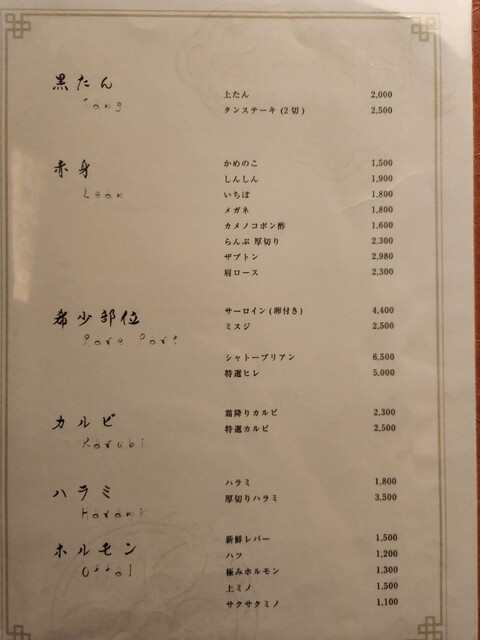 黒たん
Tong
上たん 2,000
タンステーキ (2切) 2,500
赤身
Lean
かめのこ 1,500
しんしん 1,900
いちぼ 1,800
メガネ 1,800
カメノコポン酢 1,600
らんぷ 厚切り 2,300
ザブトン 2,980
肩ロース 2,300
希少部位
Rare Part
サーロイン (卵付き) 4,400
ミスジ 2,500
シャトーブリアン 6,500
特選ヒレ 5,000
カルビ
Karubi
霜降りカルビ 2,300
特選カルビ 2,500
ハラミ
Harami
ハラミ 1,800
厚切りハラミ 3,500
ホルモン
Offal
新鮮レバー 1,500
ハツ 1,200
極みホルモン 1,300
上ミノ 1,500
サクサクミノ 1,100